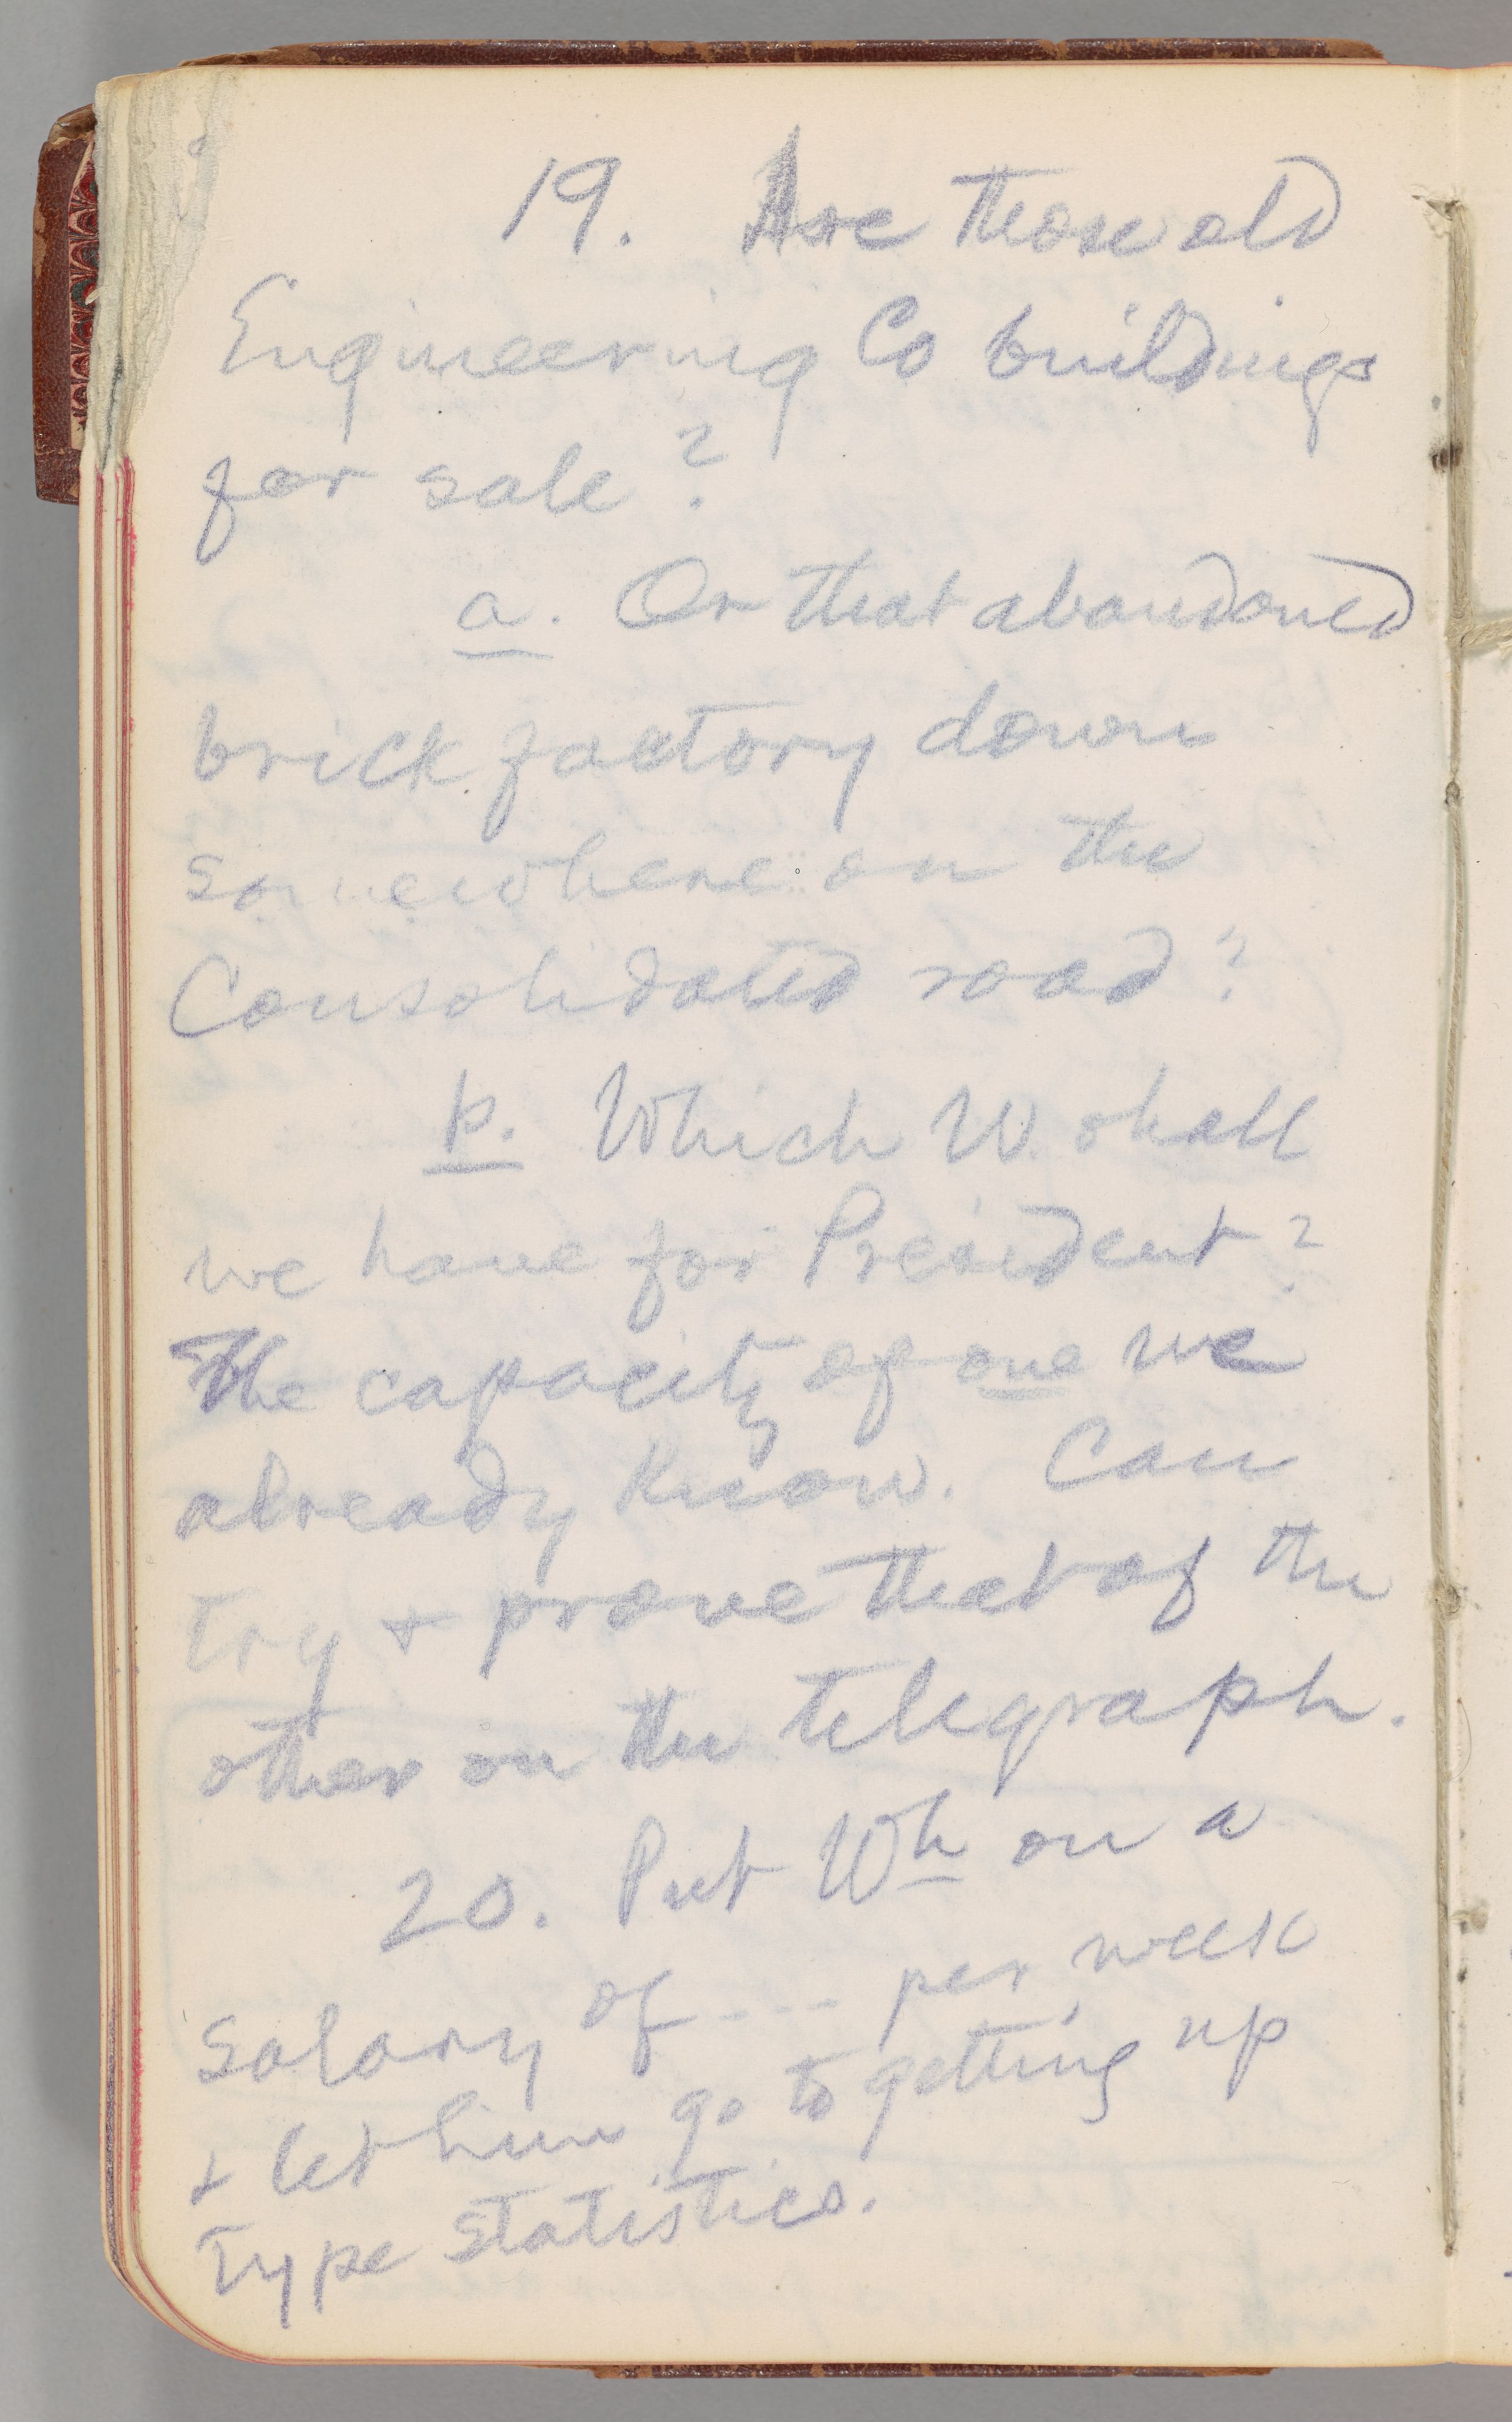 19. Are those old
Engineering Co buildings
for sale?
a. Or that abandoned
brick factory down
somewhere on the
Consolidated road?
b. Which W. shall
we have for President?
The capacity of one we
already know. Can
try & prove that of the
other on the telegraph.
20. Put Wh on a
salary of --- per week
& let him go to getting up
type statistics.